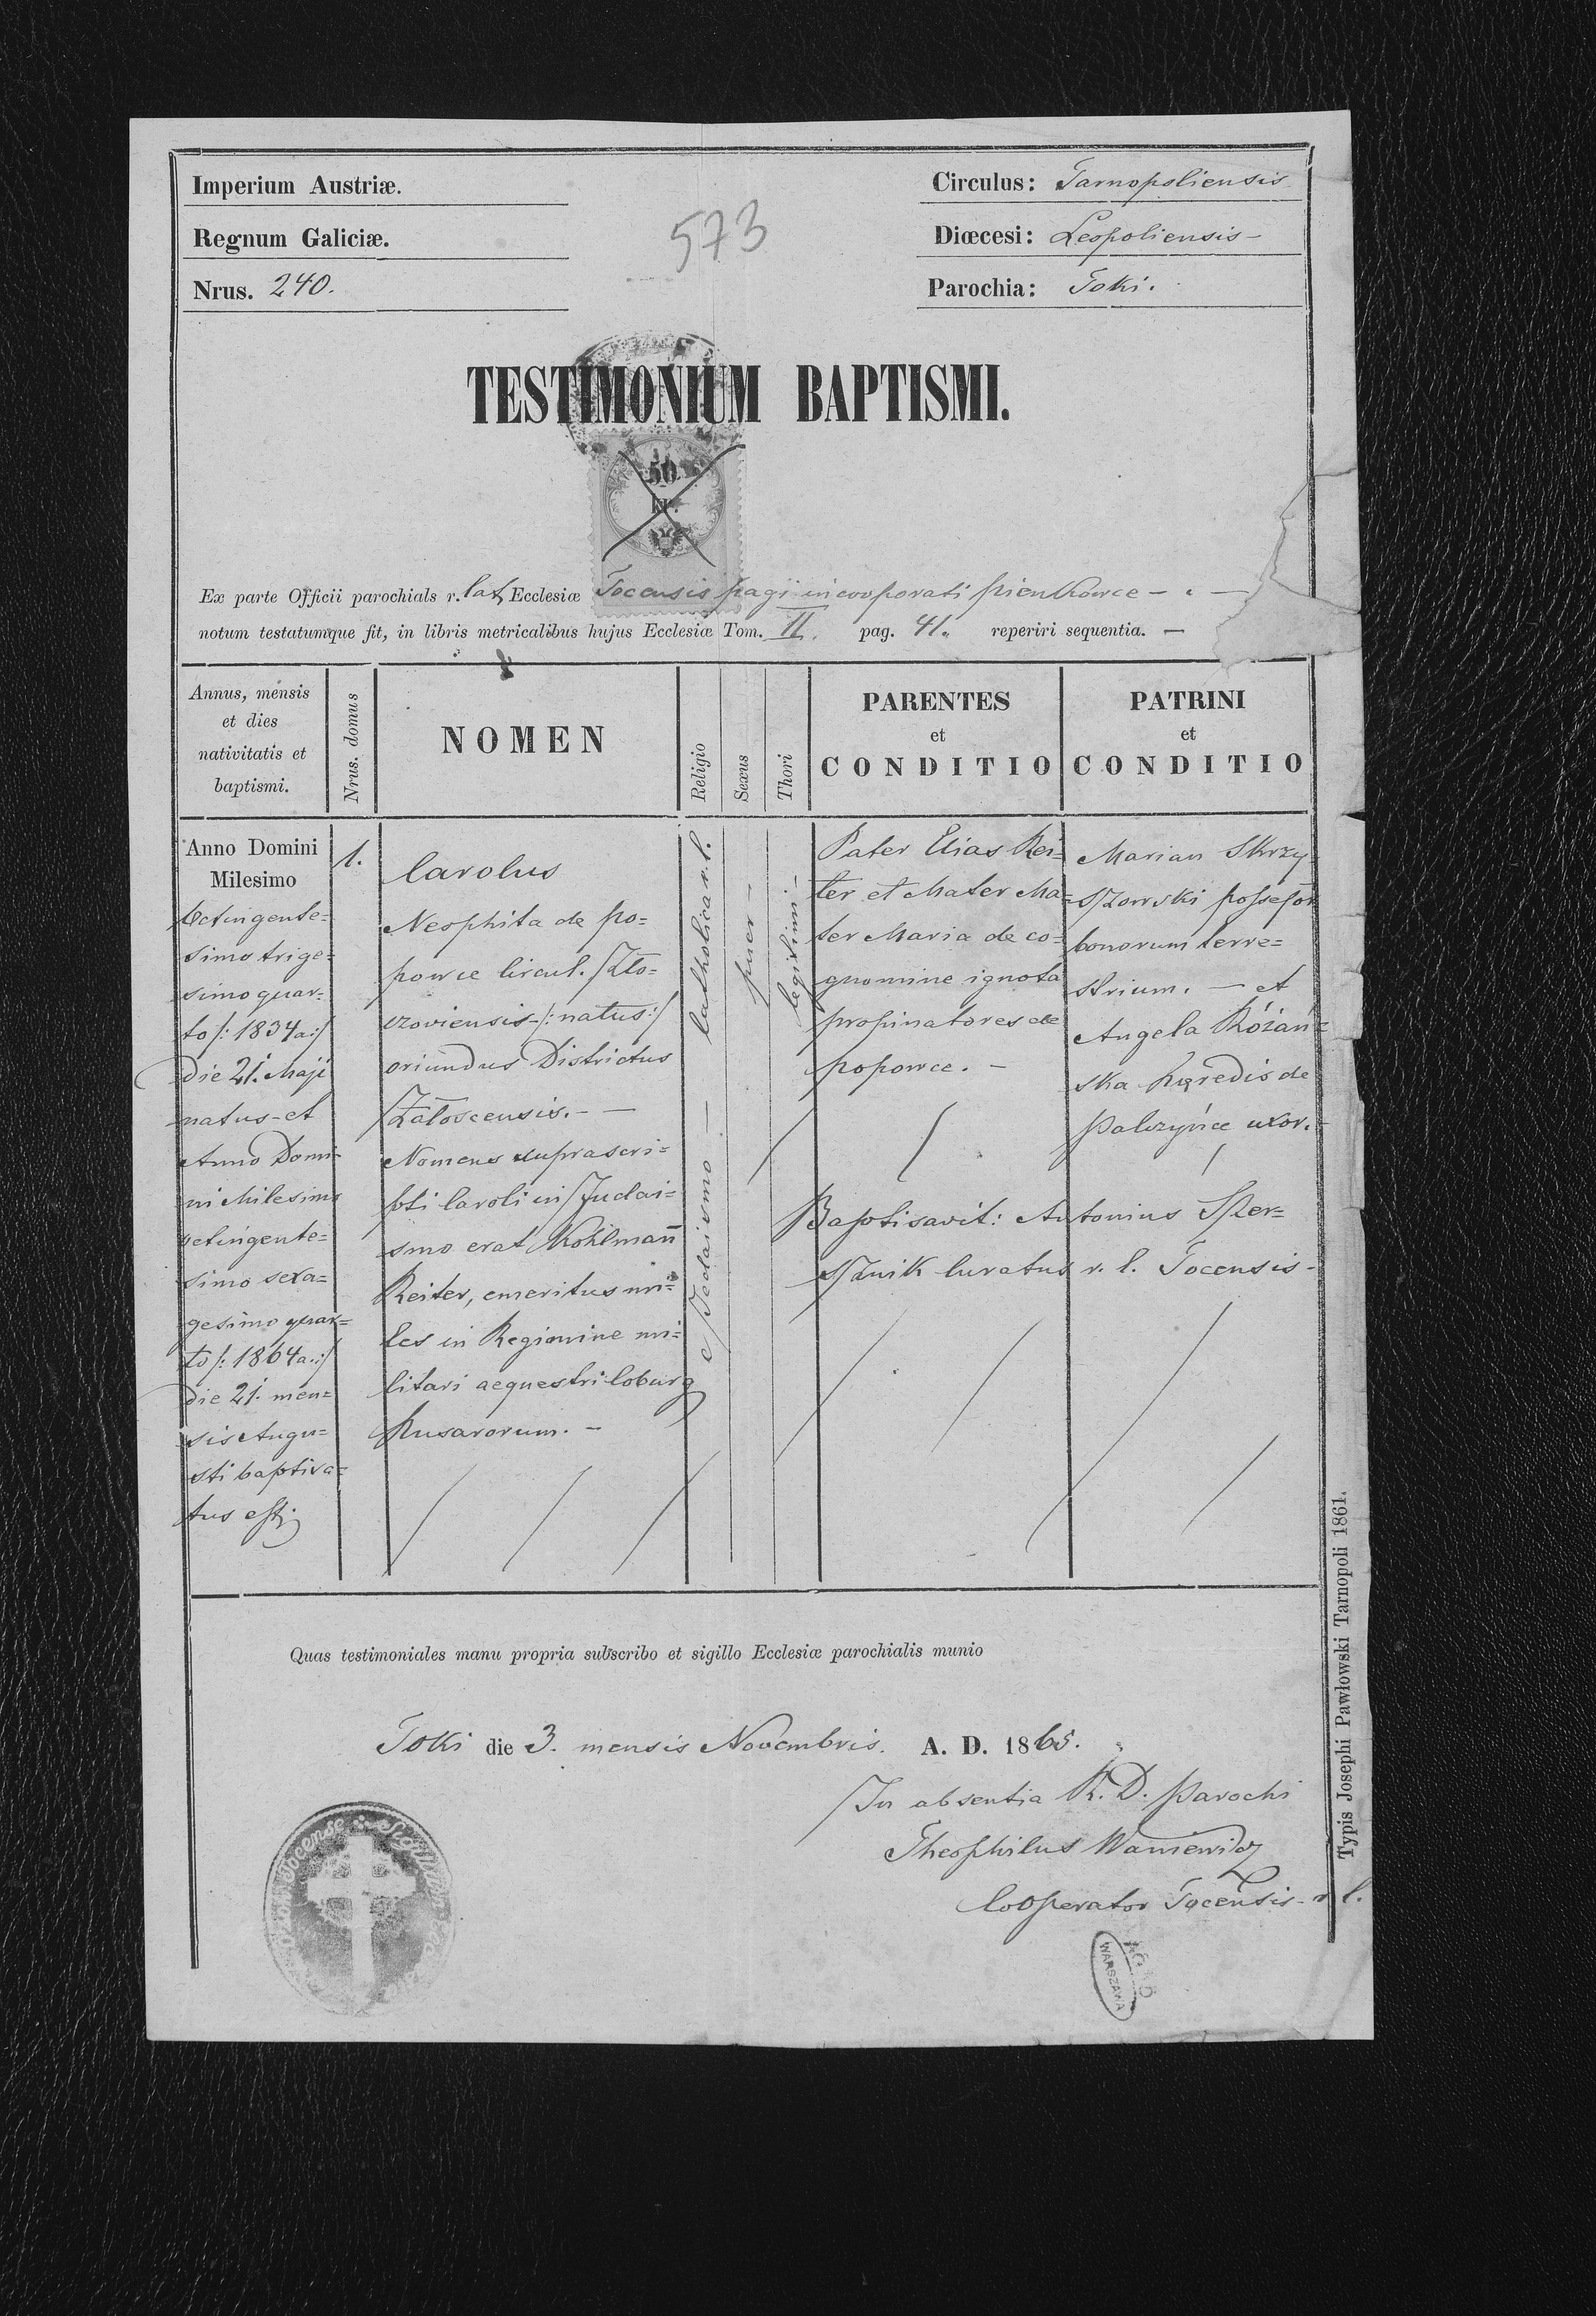 Imperium Austriæ.
Regnum Galiciæ.
Nrus. 240.
573
Circulus: Tarnopoliensis
Diœcesi: Leopoliensis –
Parochia: Toki.
TESTIMONIUM BAPTISMI.
50
kr.
Ex parte Officii parochials r. lat. Ecclesiæ Tocensis pagi incorporati pieńkowce – . –
notum testatumque fit, in libris metricalibus hujus Ecclesiæ Tom. II. pag. 41. reperiri sequentia. –
Annus, mensis
et dies
nativitatis et
baptismi.
Nrus. domus
NOMEN
Religio
Sexus
Thori
PARENTES
et
CONDITIO
PATRINI
et
CONDITIO
Anno Domini
Milesimo
octingente=
simo trige=
simo quar=
to /: 1834 a :/
die 21. Maji
natus – et
Anno Domi=
ni Milesimo
octingente=
simo sexa=
gesimo quar=
to /: 1864 a. :/
die 21. men=
sis Augu=
sti baptisa=
tus est;
1.
Carolus
Neophita de po=
powce Circul. Zło=
czoviensis – /: natus :/
oriundus Districtus
Załoscensis. – –
Nomens suprascri=
pti Caroli in Judai=
smo erat Kohlmañ
Reiter, emeritus mi=
les in Regimine mi=
litari aequestri Coburg
husarorum. –
e Judaismo – Catholica r. l.
puer –
legitimi –
Pater Elias Rei=
ter et Mater Ma=
ter Maria de co=
gnomine ignota
propinatores de
popowce. –
Marian Skrzy=
szowski possesor
bonorum terre=
strium. – et
Angela Różań=
ska hæredis de
Palczyńce uxor. –
Baptisavit: Antonius Szer=
sznik Curatus r. l. Tocensis –
Quas testimoniales manu propria subscribo et sigillo Ecclesiæ parochialis munio
Toki die 3. mensis Novembris. A. D. 1865.
In absentia R. D. Parochi
Theophilus Waniewicz
Cooperator Tocensis – r. l.
Tocense
AGAD
WARSZAWA
Typis Josephi Pawłowski Tarnopoli 1861.